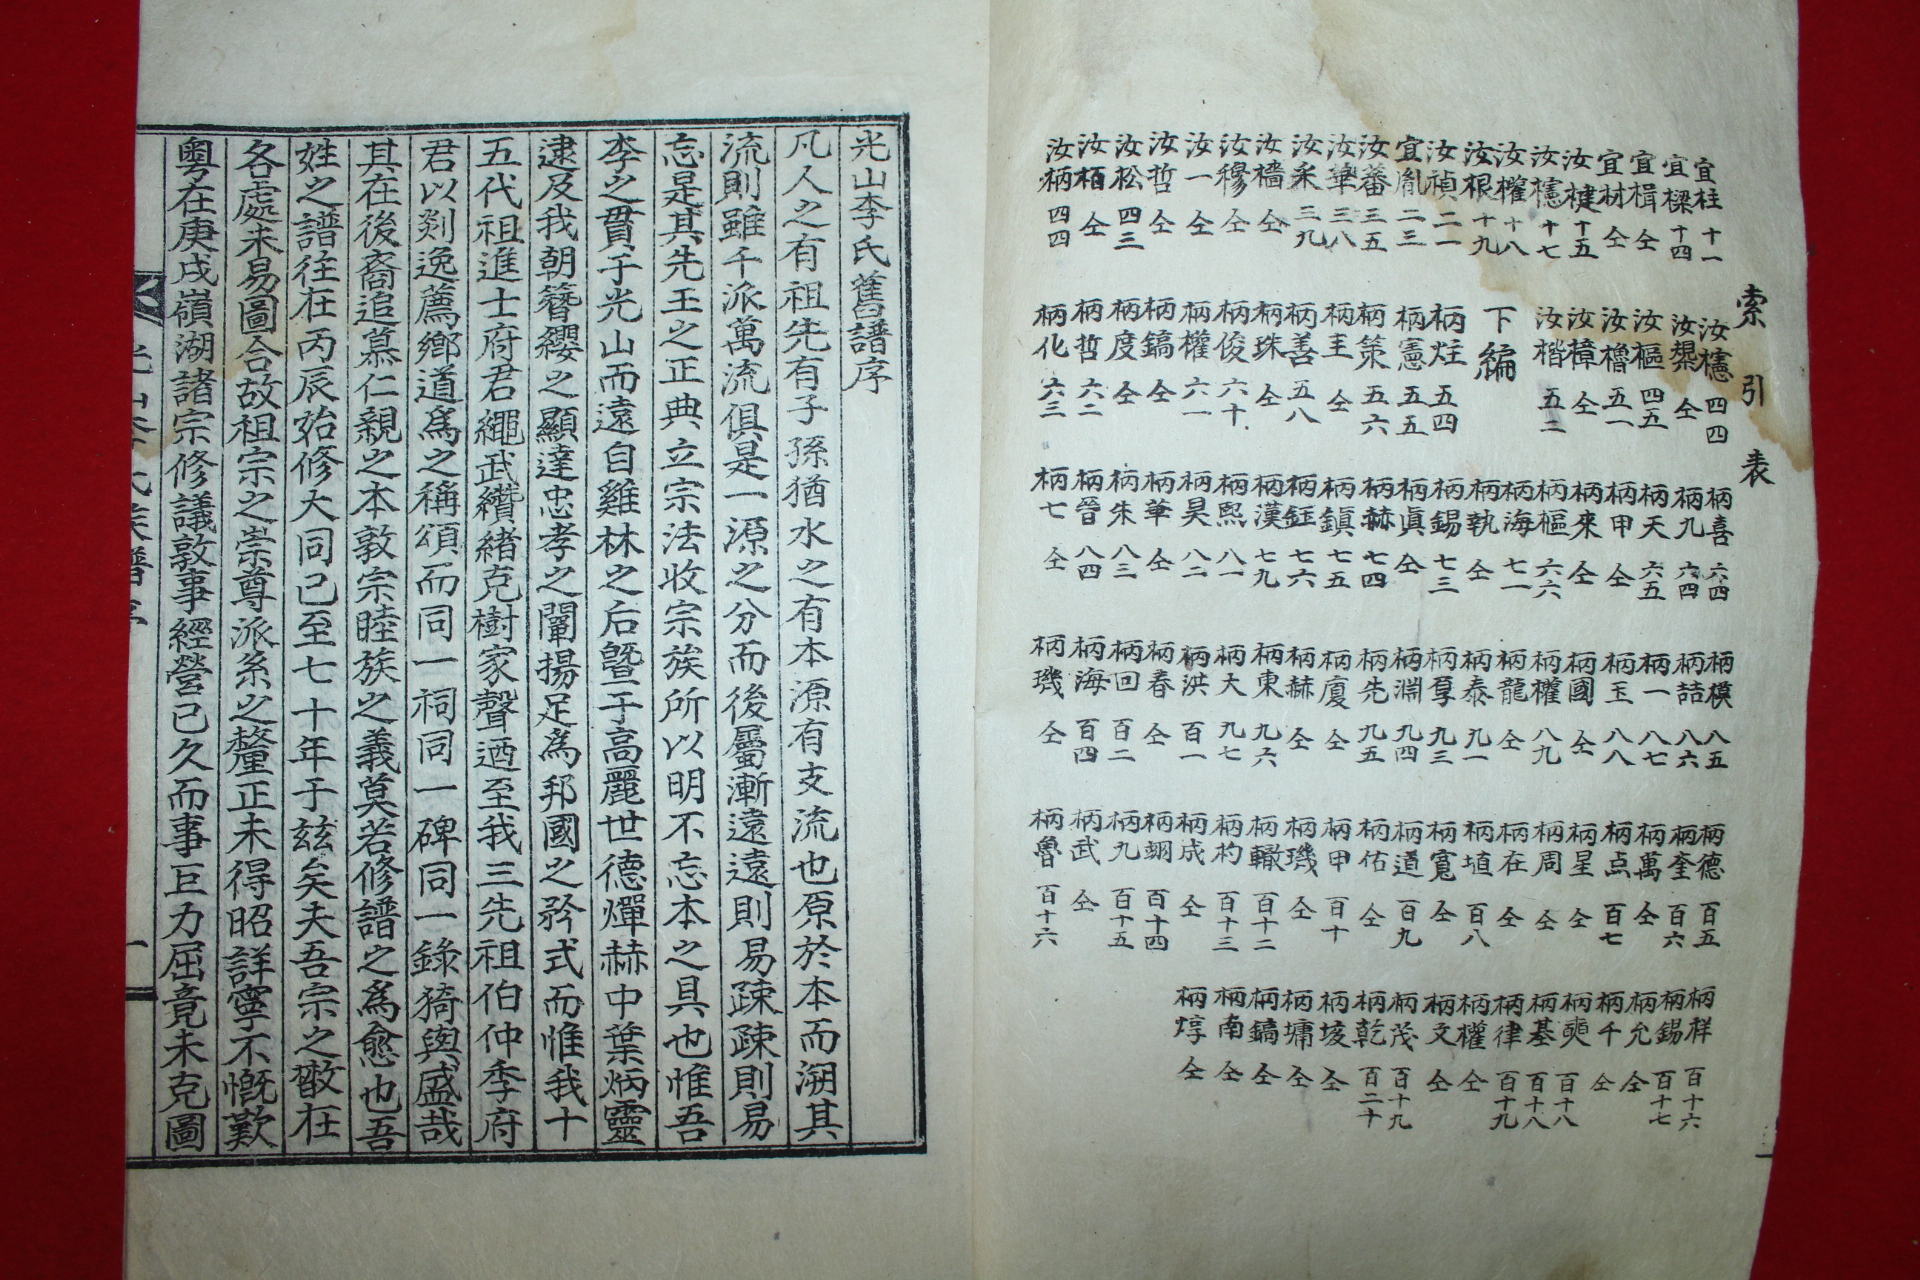 索引表
宜柱十一
宜樑十四
宜楫仝
宜林仝
汝楗十五
汝櫶十七
汝權十八
汝根十九
汝禎二一
宜胤二三
汝蕃三五
汝華三八
汝采三九
汝檣仝
汝穆仝
汝一仝
汝哲仝
汝松四三
汝栢仝
汝柄四四
汝櫶四四
汝榘仝
汝樞四五
汝櫓五一
汝樟仝
汝楷五二
下編
柄炷五四
柄憲五五
柄策五六
柄主仝
柄善五八
柄珠仝
柄俊六十
柄權六一
柄鎬仝
柄度仝
柄哲六二
柄化六三
柄喜六四
柄九六四
柄天六五
柄甲仝
柄來仝
柄樞六六
柄海七一
柄執仝
柄錫七三
柄眞仝
柄赫七四
柄鎭七五
柄鉦七六
柄漢七九
柄熙八一
柄昊八二
柄華仝
柄朱八三
柄晉八四
柄七仝
柄模八五
柄喆八六
柄一八七
柄玉八八
柄國仝
柄權八九
柄龍仝
柄泰九一
柄厚九三
柄淵九四
柄先九五
柄廈仝
柄赫仝
柄東九六
柄大九七
柄洪百一
柄春仝
柄回百二
柄海百四
柄璣仝
柄德百五
柄奎百六
柄萬仝
柄点百七
柄星仝
柄周仝
柄在仝
柄埴百八
柄寬仝
柄道百九
柄佑仝
柄甲百十
柄璣仝
柄轍百十二
柄杓百十三
柄成仝
柄翊百十四
柄九百十五
柄武仝
柄魯百十六
柄祥百十六
柄錫百十七
柄允仝
柄千仝
柄奭百十八
柄基百十八
柄律百十九
柄權仝
柄文仝
柄茂百十九
柄乾百二十
柄埈仝
柄墉仝
柄鏋仝
柄南仝
柄焞仝
光山李氏舊譜序
凡人之有祖先有子孫猶水之有本源有支流也原於本而溯其
流則雖千派萬流俱是一源之分而後屬漸遠遠則易疎疎則易
忘是其先王之正典立宗法收宗族所以明不忘本之具也惟吾
李之貫于光山而遠自雞林之后曁于高麗世德燀赫中葉炳靈
逮及我朝簪纓之顯達忠孝之闡揚足爲邦國之矜式而惟我十
五代祖進士府君繩武纘緖克樹家聲迺至我三先祖伯仲季府
君以剡逸薦鄕道爲之稱頌而同一祠同一碑同一錄猗與盛哉
其在後裔追慕仁親之本敦宗睦族之義莫若修譜之爲愈也吾
姓之譜徃在丙辰始修大同已至七十年于玆矣夫吾宗之散在
各處未易圖合故祖宗之崇尊派系之釐正未得昭詳寧不慨歎
粤在庚戌嶺湖諸宗修議敦事經營已久而事巨力屈竟未克圖
光山李氏族譜序
一